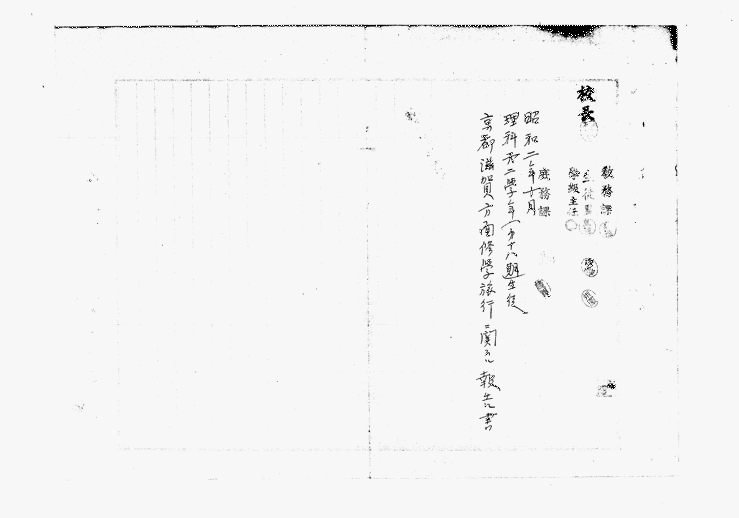 校長
教務課
生徒
學級主任
庶務課
昭和二年十月
理科第二學年(第十八期生徒)
京都滋賀方面修學旅行ニ関スル報告書